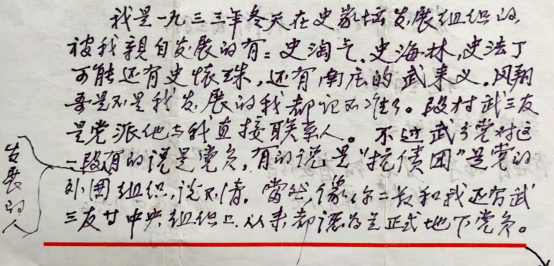 我是一九三三年冬天在史家坛发展组织的,
被我亲自发展的有:史淘气.史海林,史法丁
可能还有史怀珠,还有南底的武来义.风翔
吾是不是我发展的我都记不准了。段村武三友
是党派他与我直接联系人。不过武乡党对这
一段有的说是党员,有的说是“抗债团”是党的
外围组织,说不清。当然像你二 和我还有武
三友 中央组织上从来都认为是正式地下党员。
发展的人